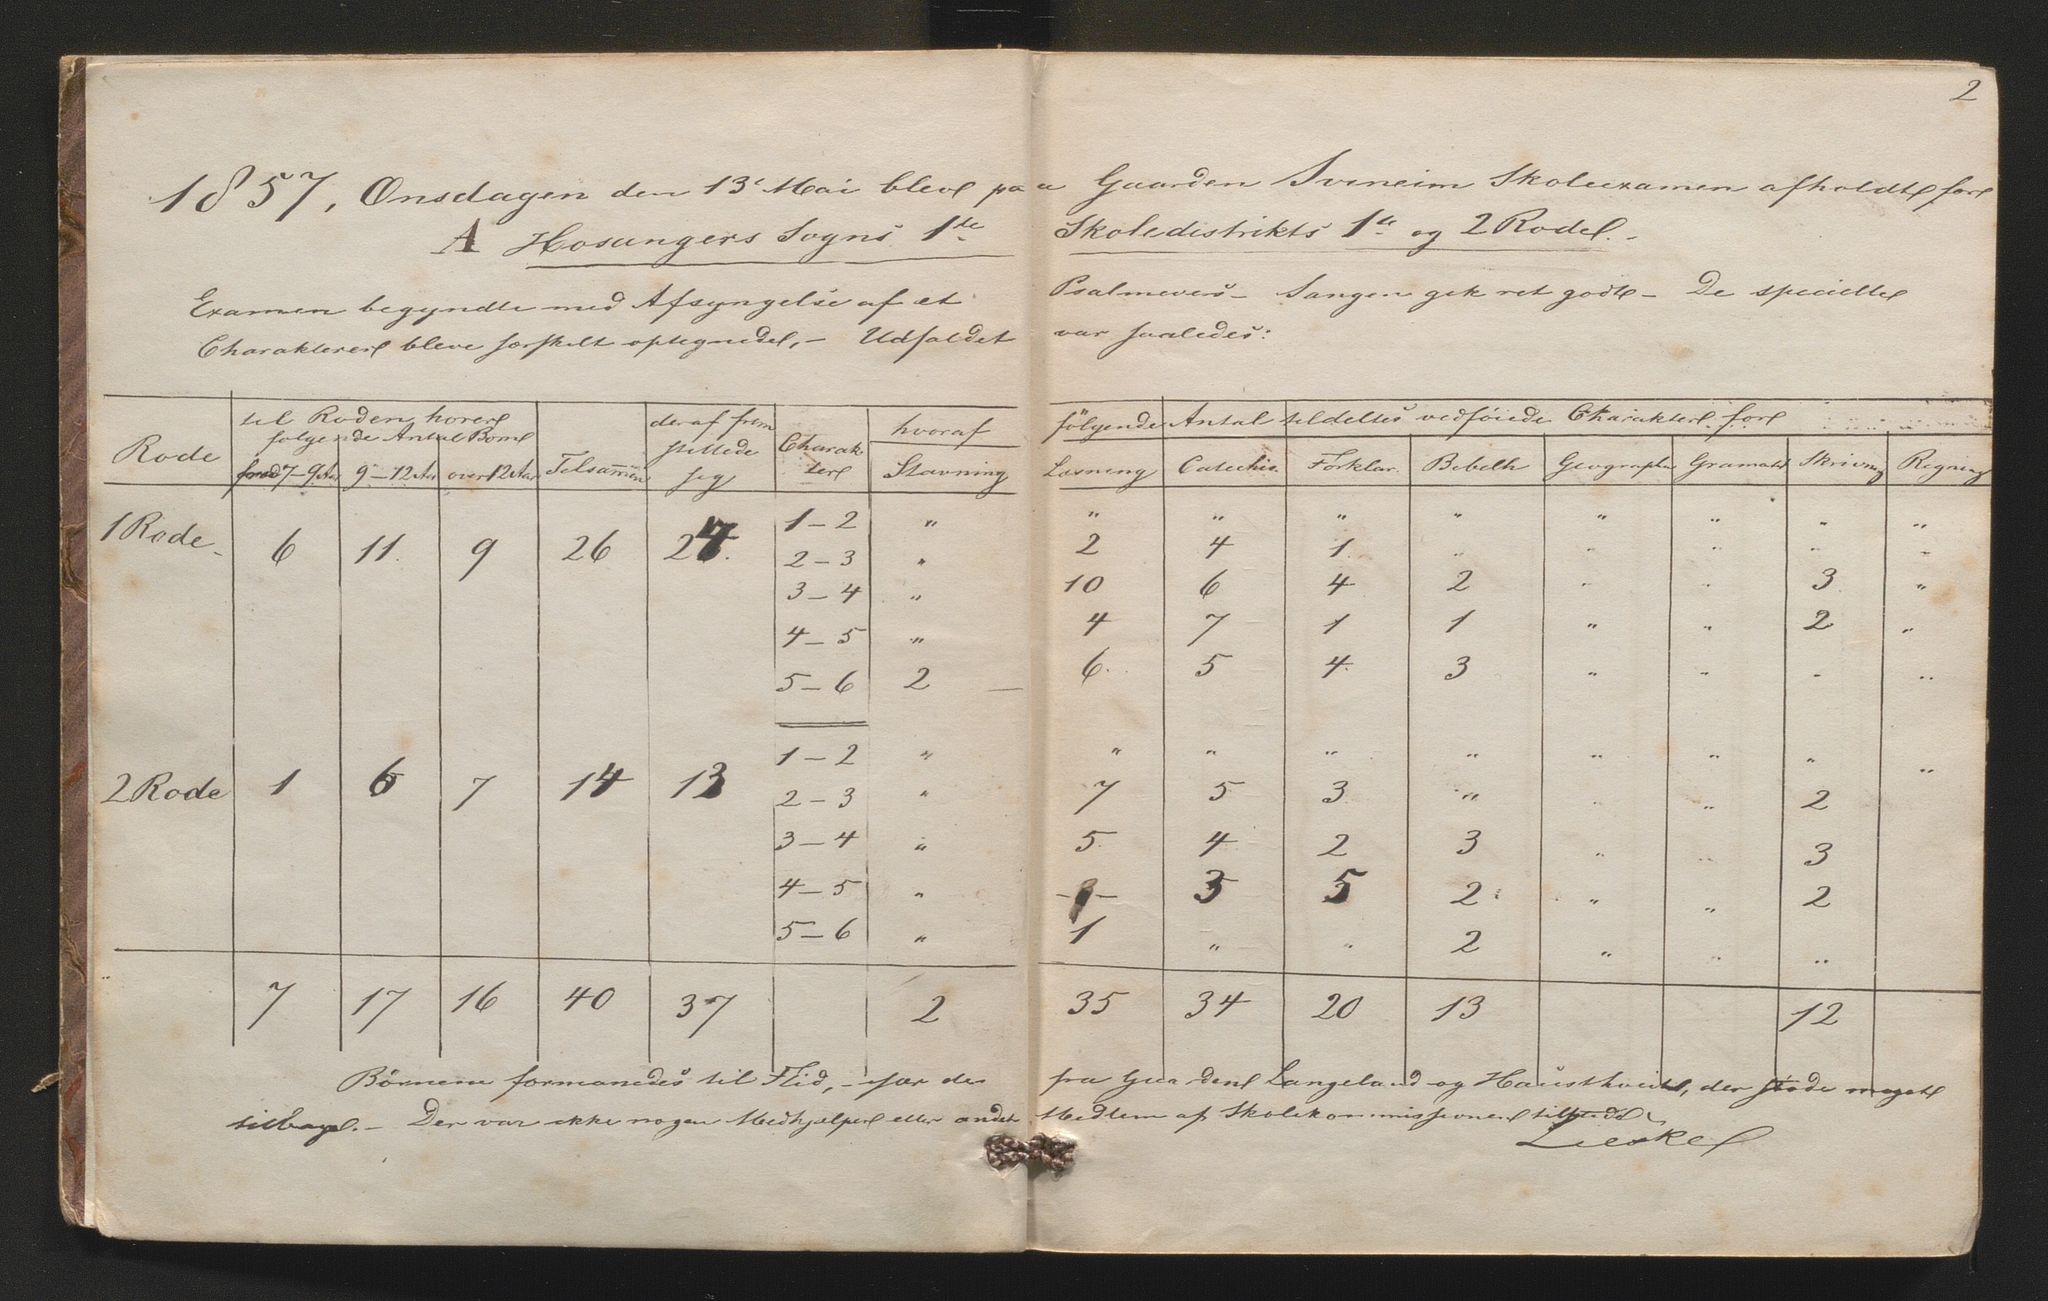 2
1857, Onsdagen den 13' Mai bleve paa Gaarden Sveneim Skoleexamen afholdte fore
A Hosangers Sogns 1ste Skoledistrikts 1te og 2 Rode. -
Examen begyndte med Afsyngelse af et Psalmevers - Sangen gik ret godt - De specielle
Charakterer bleve særskilt optegnede, - Udfaldet var saaledes:
Rode | til Roden hører følgende Antal Børn | Tilsammen | deraf frem stillede sig | Charak tere | hvoraf følgende Antal tildeltes vedføiede Charaktere fore
7-9 Aar | 9-12 Aar | over 12 Aar | Stavning | Læsning | Catechis. | Forklar. | Bibelh | Geographie | Gramatik | Skrivning | Regning
1 Rode - | 6 | 11. | 9 | 26 | 24. | 1-2 | " | " | " | " | " | " | " | " | "
2-3 | " | 2 | 4 | 1 | " | " | " | " | "
3-4 | " | 10 | 6 | 4 | 2 | " | " | 3 | "
4-5 | " | 4 | 7 | 1 | 1 | " | " | 2 | "
5-6 | 2 - | 6. | 5 | 4. | 3 | " | " | " | "
2 Rode | 1 | 6 | 7 | 14 | 13 | 1-2 | " | " | " | " | " | " | " | " | "
2-3 | " | 7 | 5 | 3 | " | " | " | 2
3-4 | " | 5 | 4 | 2 | 3 | " | " | 3
4-5 | " | - - | 3 | 5 | 2 | " | " | 2
5-6 | " | 1 | " | " | 2 | " | " | "
7 | 17 | 16 | 40 | 37 | 2 | 35 | 34 | 20 | 13 | 12
Børnene formanedes til Flid, - især de fra Gaardene Langeland og Hausthveit, der stode meget
tilbage. - Der var ikke nogen Medhjelper eller andet Medlem af Skolekommissionen tilstede